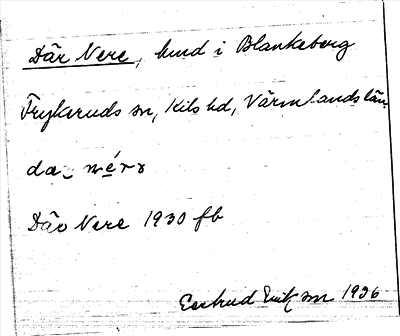 Där Nere, hmd i Blankeberg
Frykeruds sn, Kils hd, Värmlands län
da_ nérə
Där Nere 1930 fb
Gertrud Erikson 1936